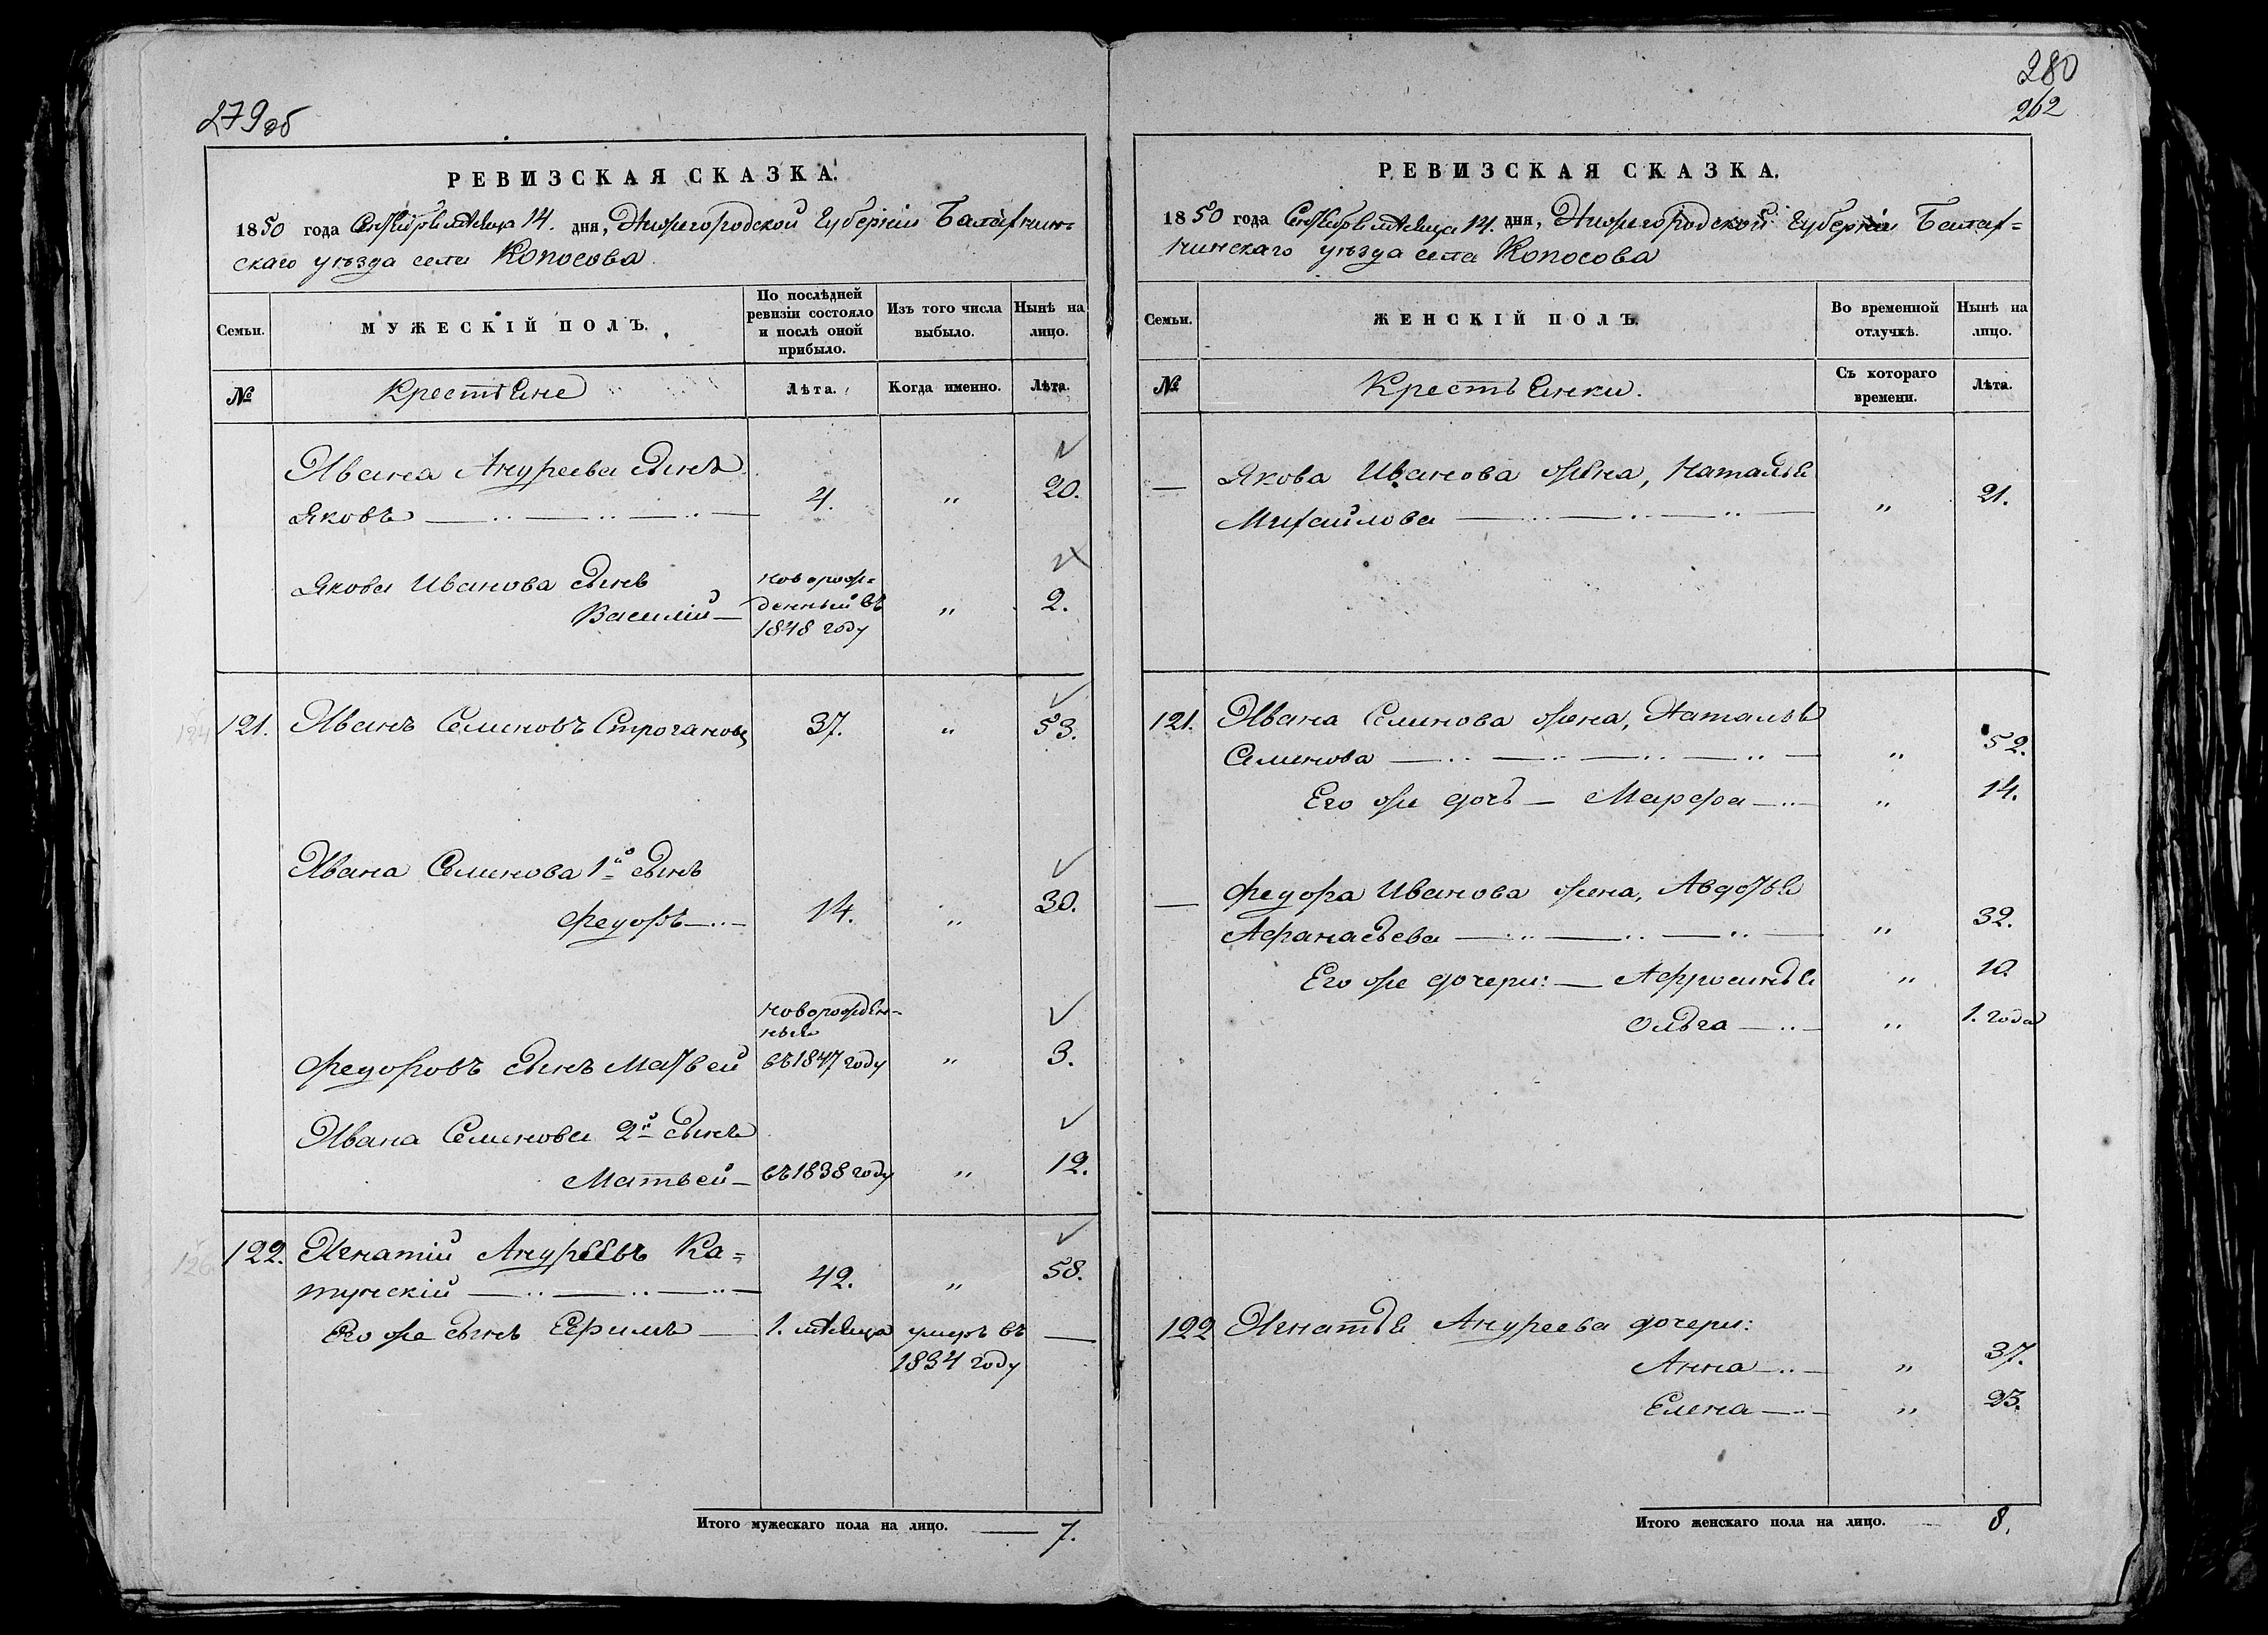 279 об
РЕВИЗСКАЯ СКАЗКА.
1850 года Сентября мѣсяца 14. дня, Нижегородской Губерніи Балахнин=
скаго уѣзда села Копосова
Семьи.
МУЖЕСКІЙ ПОЛЪ.
По послѣдней
ревизіи состояло
и послѣ оной
прибыло.
Изъ того числа
выбыло.
Нынѣ на
лицо.
№
Крестьяне
Лѣта.
Когда именно.
Лѣта.
Ивана Андреева сынъ
Яковъ — 4. „ 20.
Якова Иванова сынъ
Василій — новорож=
денный въ
1848 году „ 2.
121. Иванъ Семеновъ Строгановъ 37. „ 53.
Ивана Семенова 1й сынъ
Федоръ — 14. „ 30.
Федоровъ сынъ Матвей новорожден-
ный
въ 1847 году „ 3.
Ивана Семенова 2й сынъ
Матвей — въ 1838 году „ 12.
122. Игнатій Андреевъ Ка=
тунскій — 42. „ 58.
Его же сынъ Ефимъ — 1. мѣсяца умеръ въ —
1834 году
Итого мужескаго пола на лицо. — 7.
280
262
РЕВИЗСКАЯ СКАЗКА.
1850 года Сентября мѣсяца 14. дня, Нижегородской Губерніи Балах=
нинскаго уѣзда села Копосова
Семьи.
ЖЕНСКІЙ ПОЛЪ.
Во временной
отлучкѣ.
Нынѣ на
лицо.
№
Крестьянки.
Съ котораго
времени.
Лѣта.
— Якова Иванова жена, Наталья
Михайлова — „ 21.
121. Ивана Семенова жена, Наталья
Семенова — „ 52.
Его же дочь — Марфа — „ 14.
— Федора Иванова жена, Авдотья
Афанасьева — „ 32.
Его же дочери: — Афросинья „ 10.
Ольга — „ 1. года
122 Игнатья Андреева дочери:
Анна — „ 37.
Елена — „ 23.
Итого женскаго пола на лицо. — 8.